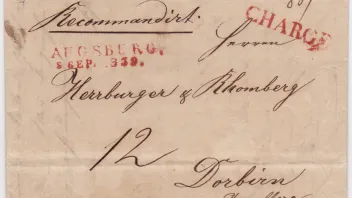 Recommandirt.
CHARGÉ
AUGSBURG.
5 SEP. 1839.
Herren
Herrburger & Rhomberg
12
Dorbirn